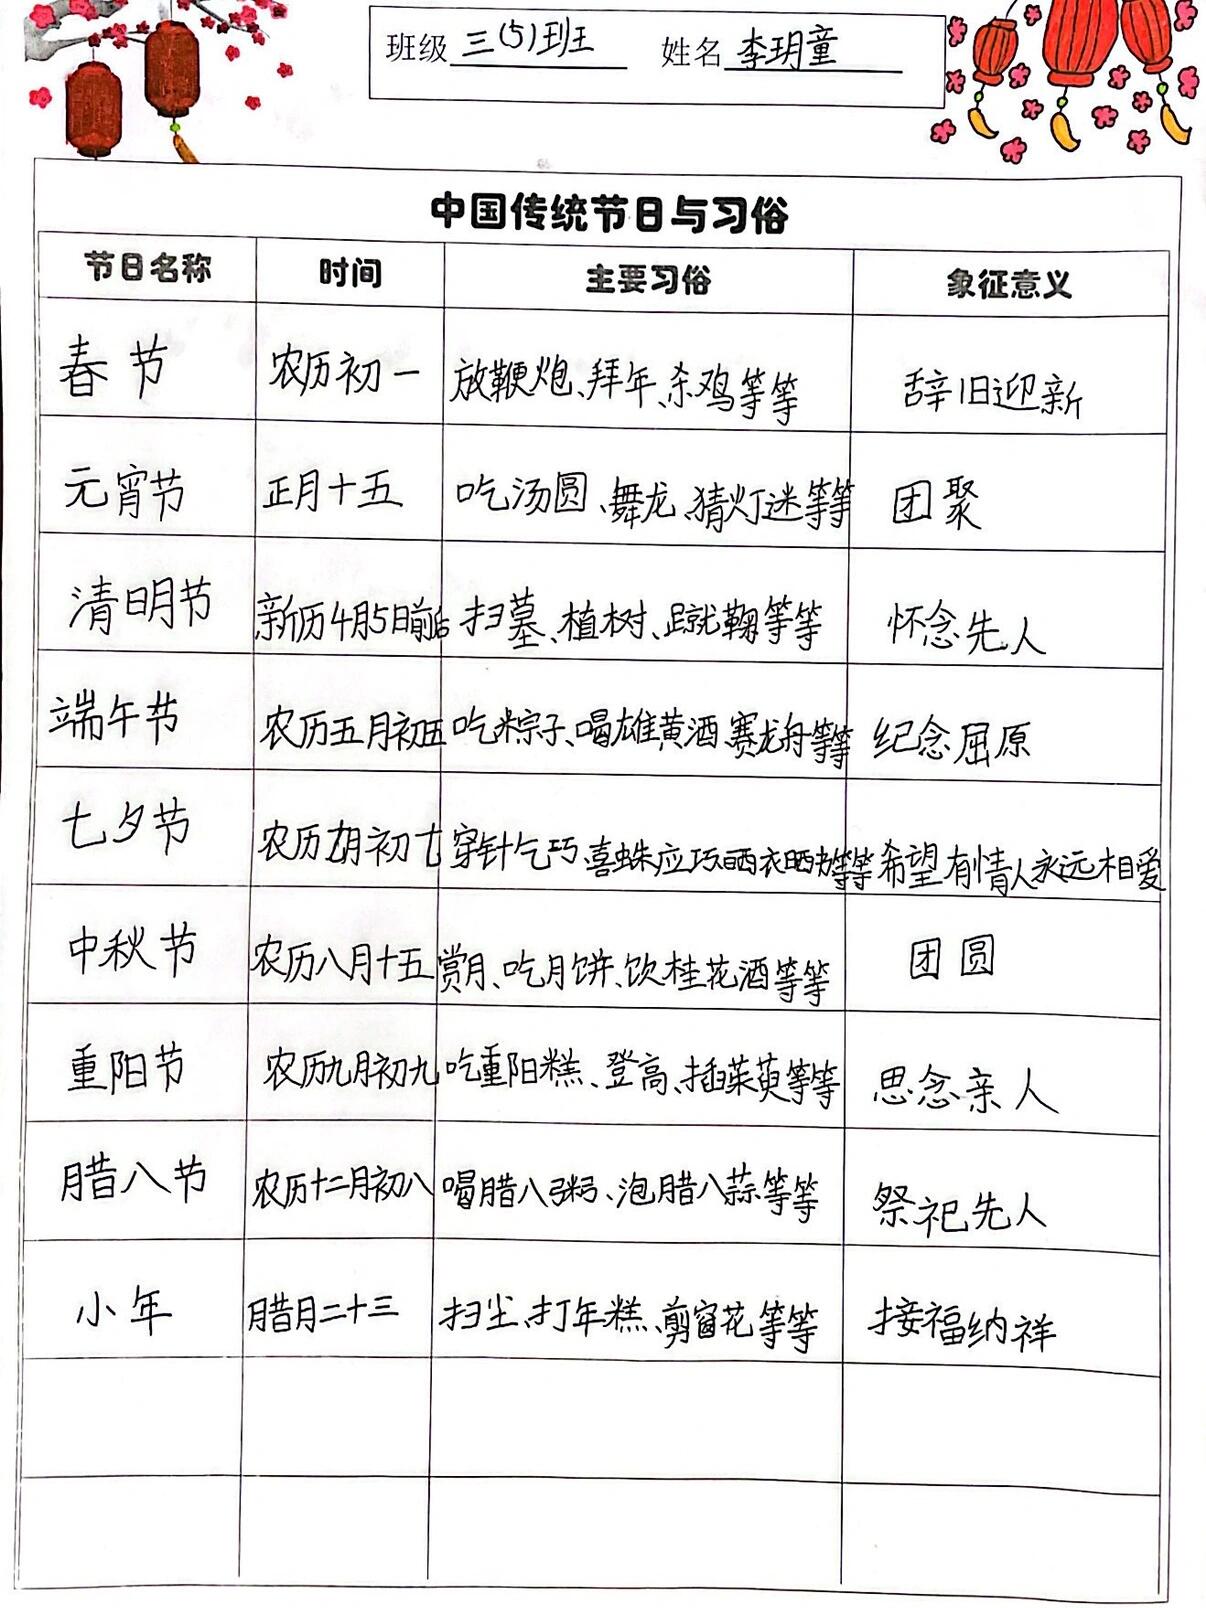 班级 三(5)班 姓名 李玥童
中国传统节日与习俗
节日名称 时间 主要习俗 象征意义
春节 农历初一 放鞭炮、拜年、杀鸡等等 辞旧迎新
元宵节 正月十五 吃汤圆、舞龙、猜灯迷等等 团聚
清明节 新历4月5日前后 扫墓、植树、蹴鞠等等 怀念先人
端午节 农历五月初五 吃粽子、喝雄黄酒、赛龙舟等等 纪念屈原
七夕节 农历 月初七 穿针乞巧、喜蛛应巧、晒衣晒书等等 希望有情人永远相爱
中秋节 农历八月十五 赏月、吃月饼、饮桂花酒等等 团圆
重阳节 农历九月初九 吃重阳糕、登高、插茱萸等等 思念亲人
腊八节 农历十二月初八 喝腊八粥、泡腊八蒜等等 祭祀先人
小年 腊月二十三 扫尘、打年糕、剪窗花等等 接福纳祥